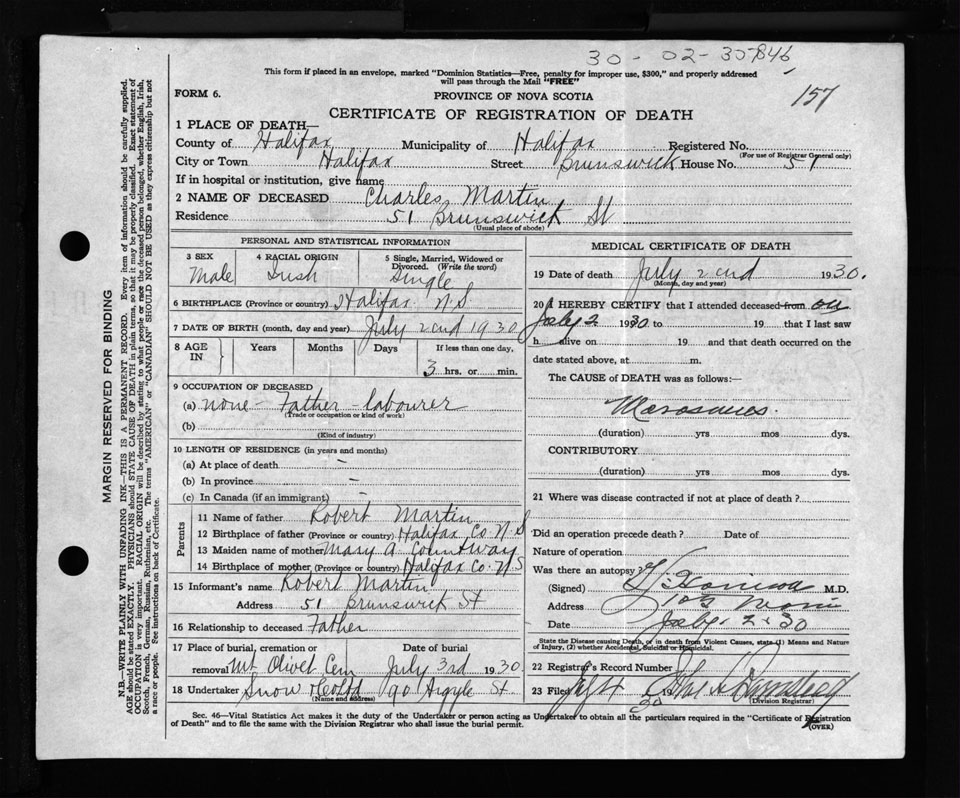 30-02-307846
This form if placed in an envelope, marked "Dominion Statistics—Free, penalty for improper use, $300," and properly addressed
will pass through the Mail "FREE"
157
FORM 6.
PROVINCE OF NOVA SCOTIA
CERTIFICATE OF REGISTRATION OF DEATH
1 PLACE OF DEATH—
County of Halifax Municipality of Halifax Registered No.
(For use of Registrar General only)
City or Town Halifax Street Brunswick House No. 51
If in hospital or institution, give name
2 NAME OF DECEASED Charles Martin
Residence 51 Brunswick St
(Usual place of abode)
PERSONAL AND STATISTICAL INFORMATION
3 SEX 4 RACIAL ORIGIN 5 Single, Married, Widowed or
Divorced. (Write the word)
Male Irish Single
6 BIRTHPLACE (Province or country) Halifax N.S
7 DATE OF BIRTH (month, day and year) July 2nd 1930
8 AGE
IN
Years Months Days If less than one day,
3 hrs. or min.
9 OCCUPATION OF DECEASED
(a) none - Father - labourer
(Trade or occupation or kind of work)
(b)
(Kind of industry)
10 LENGTH OF RESIDENCE (in years and months)
(a) At place of death -
(b) In province -
(c) In Canada (if an immigrant) -
Parents
11 Name of father Robert Martin
12 Birthplace of father (Province or country) Halifax Co N.S
13 Maiden name of mother Mary A Countway
14 Birthplace of mother (Province or country) Halifax Co. N S
15 Informant's name Robert Martin
Address 51 Brunswick St
16 Relationship to deceased Father
17 Place of burial, cremation or Date of burial
removal Mt Olivet Cem July 3rd 1930
18 Undertaker Snow & Co Ltd 90 Argyle St
(Name and address)
MEDICAL CERTIFICATE OF DEATH
19 Date of death July 2nd 1930.
(Month, day and year)
20 I HEREBY CERTIFY that I attended deceased from on
July 2 1930 to 19 that I last saw
h alive on 19 and that death occurred on the
date stated above, at m.
The CAUSE of DEATH was as follows:—
Marasmus.
(duration) yrs mos dys.
CONTRIBUTORY
(duration) yrs mos dys.
21 Where was disease contracted if not at place of death?
Did an operation precede death? Date of
Nature of operation
Was there an autopsy?
(Signed) M.D.
Address Morris
Date July 2. 30
State the Disease causing Death, or in death from Violent Causes, state (1) Means and Nature
of Injury, (2) whether Accidental, Suicidal or Homicidal.
22 Registrar's Record Number
23 Filed July 4 19 30
(Division Registrar)
Sec. 46—Vital Statistics Act makes it the duty of the Undertaker or person acting as Undertaker to obtain all the particulars required in the "Certificate of Registration
of Death" and to file the same with the Division Registrar who shall issue the burial permit.
(OVER)
MARGIN RESERVED FOR BINDING
N.B.—WRITE PLAINLY WITH UNFADING INK—THIS IS A PERMANENT RECORD. Every item of information should be carefully supplied.
AGE should be stated EXACTLY. PHYSICIANS should STATE CAUSE OF DEATH in plain terms, so that it may be properly classified. Exact statement of
OCCUPATION is very important. RACIAL ORIGIN will be described by stating to what people or race the deceased person belonged, whether English, Irish,
Scotch, French, German, Russian, Ruthenian, etc. The terms "AMERICAN" or "CANADIAN" SHOULD NOT BE USED as they express citizenship but not
a race or people. See instructions on back of Certificate.